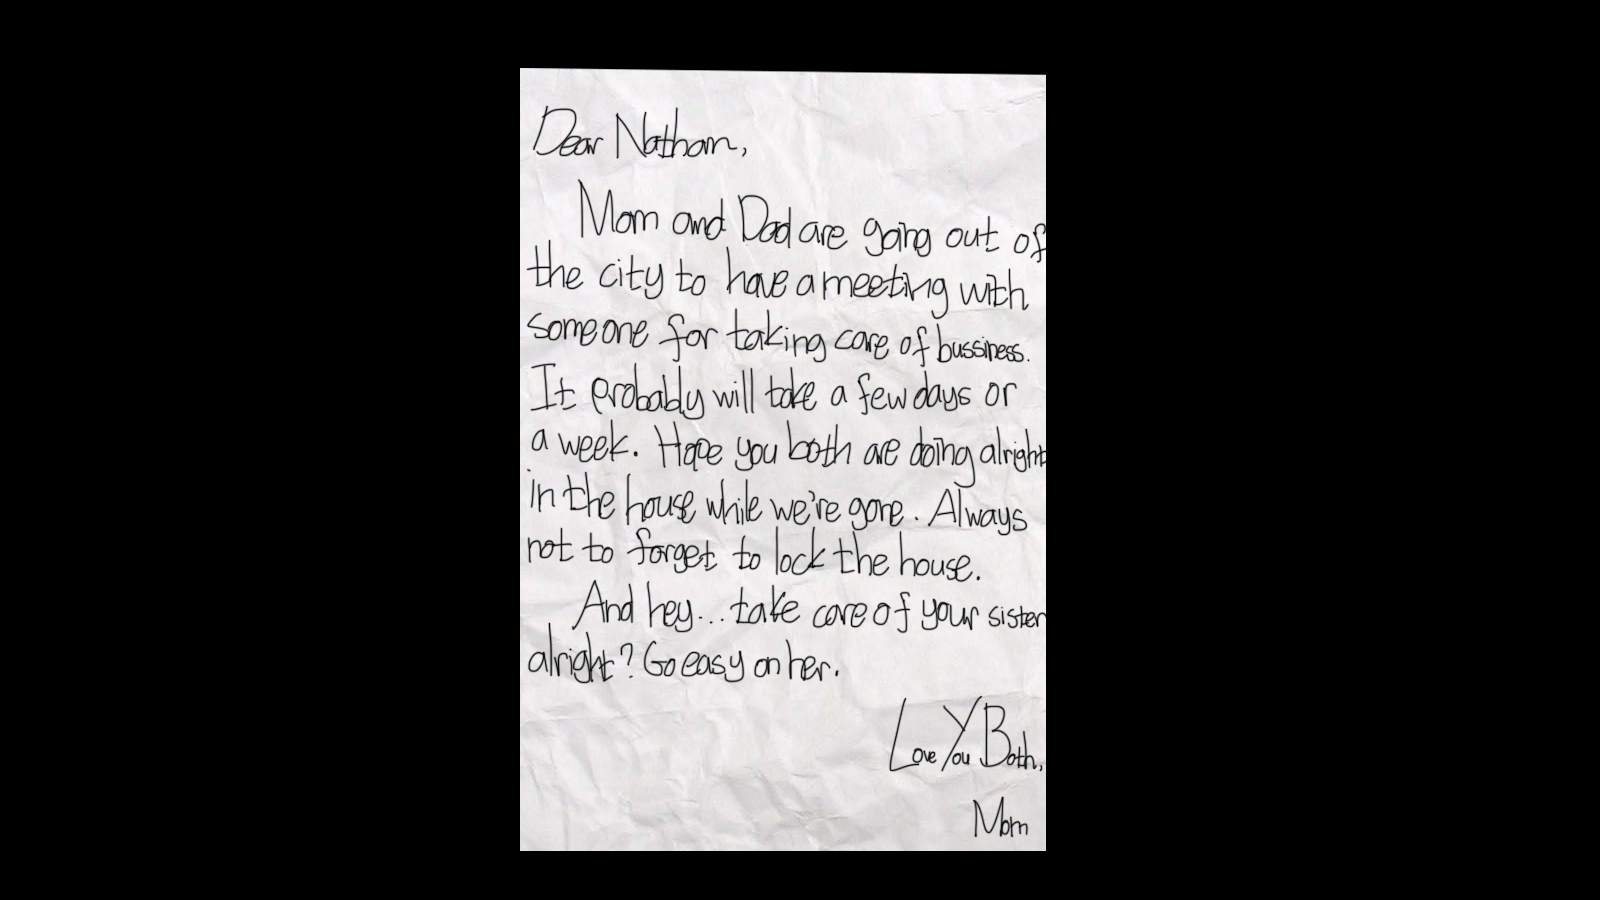 Dear Nathan,
Mom and Dad are going out of
the city to have a meeting with
someone for taking care of bussiness.
It probably will take a few days or
a week. Hope you both are doing alright
in the house while we're gone. Always
not to forget to lock the house.
And hey... take care of your sister
alright? Go easy on her.
Love You Both,
Mom